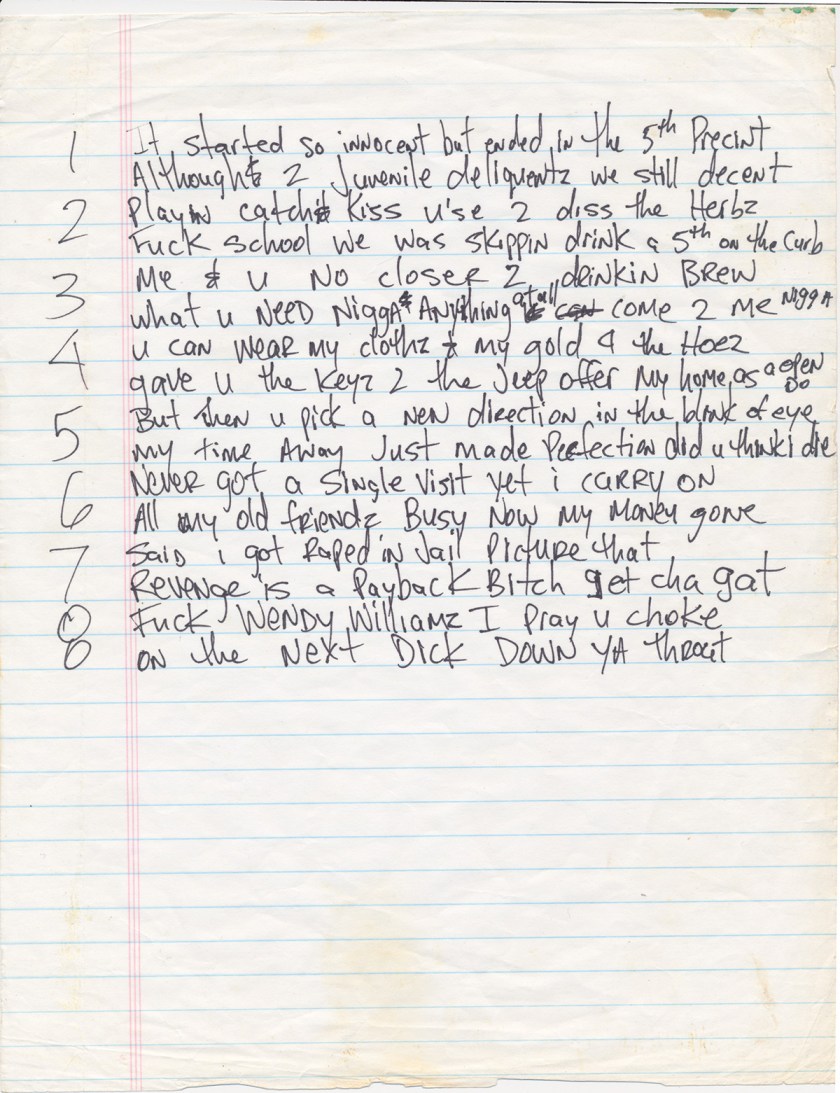 1 It started so innocent but ended in the 5th Precint
Although 2 Juvenile deliquentz we still decent
2 Playin catch & Kiss u'se 2 diss the Herbz
Fuck school we was skippin drink a 5th on the Curb
3 Me & u No closer 2 drinkin Brew
what u NEED NiggA Anything at all come 2 me NiggA
4 u can wear my clothz & my gold & the Hoez
gave u the Keyz 2 the Jeep offer my home as a open Do
5 But then u pick a new direction in the blink of eye
my time Away Just made Perfection did u think i die
6 Never got a single visit yet i carry on
All my old friendz Busy Now my Money gone
7 Said i got Raped in Jail Picture that
Revenge is a Payback Bitch get cha gat
8 Fuck Wendy Williamz I pray u choke
on the Next Dick Down ya throat